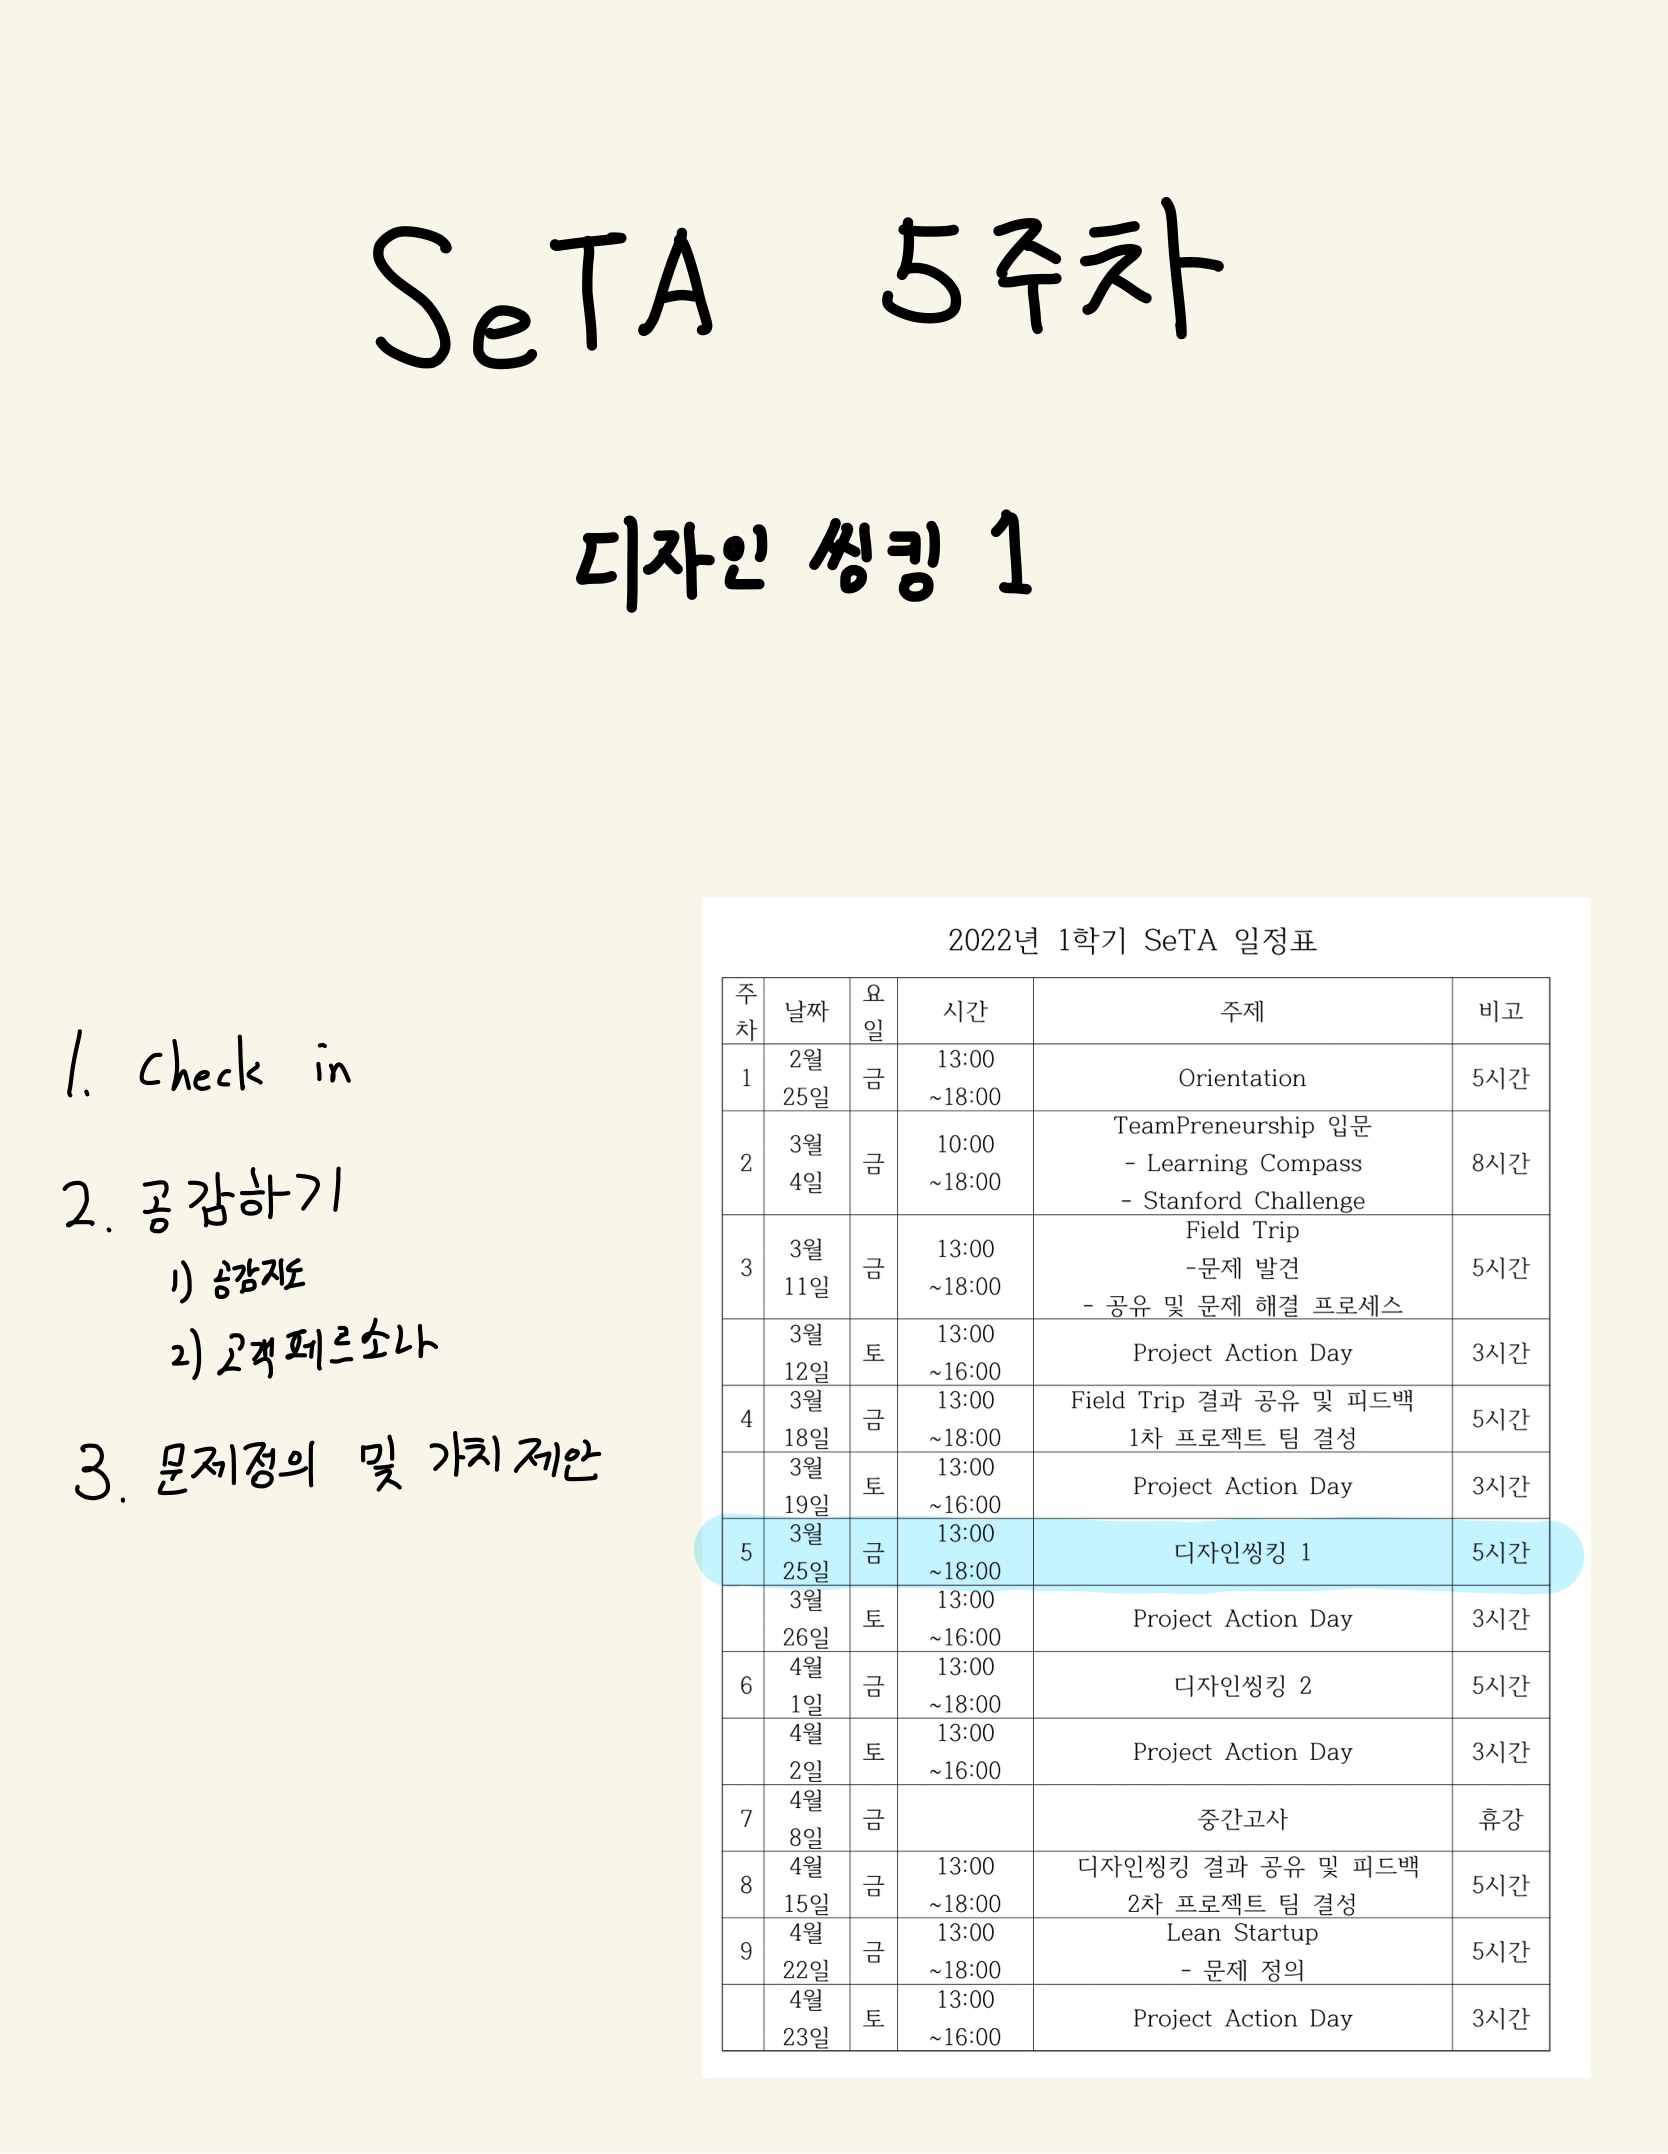 SeTA 5주차
디자인 씽킹 1
1. Check in
2. 공감하기
1) 공감지도
2) 고객페르소나
3. 문제정의 및 가치제안
2022년 1학기 SeTA 일정표
주차 날짜 요일 시간 주제 비고
1 2월 25일 금 13:00 ~18:00 Orientation 5시간
2 3월 4일 금 10:00 ~18:00 TeamPreneurship 입문 - Learning Compass - Stanford Challenge 8시간
3 3월 11일 금 13:00 ~18:00 Field Trip -문제 발견 - 공유 및 문제 해결 프로세스 5시간
3월 12일 토 13:00 ~16:00 Project Action Day 3시간
4 3월 18일 금 13:00 ~18:00 Field Trip 결과 공유 및 피드백 1차 프로젝트 팀 결성 5시간
3월 19일 토 13:00 ~16:00 Project Action Day 3시간
5 3월 25일 금 13:00 ~18:00 디자인씽킹 1 5시간
3월 26일 토 13:00 ~16:00 Project Action Day 3시간
6 4월 1일 금 13:00 ~18:00 디자인씽킹 2 5시간
4월 2일 토 13:00 ~16:00 Project Action Day 3시간
7 4월 8일 금 중간고사 휴강
8 4월 15일 금 13:00 ~18:00 디자인씽킹 결과 공유 및 피드백 2차 프로젝트 팀 결성 5시간
9 4월 22일 금 13:00 ~18:00 Lean Startup - 문제 정의 5시간
4월 23일 토 13:00 ~16:00 Project Action Day 3시간